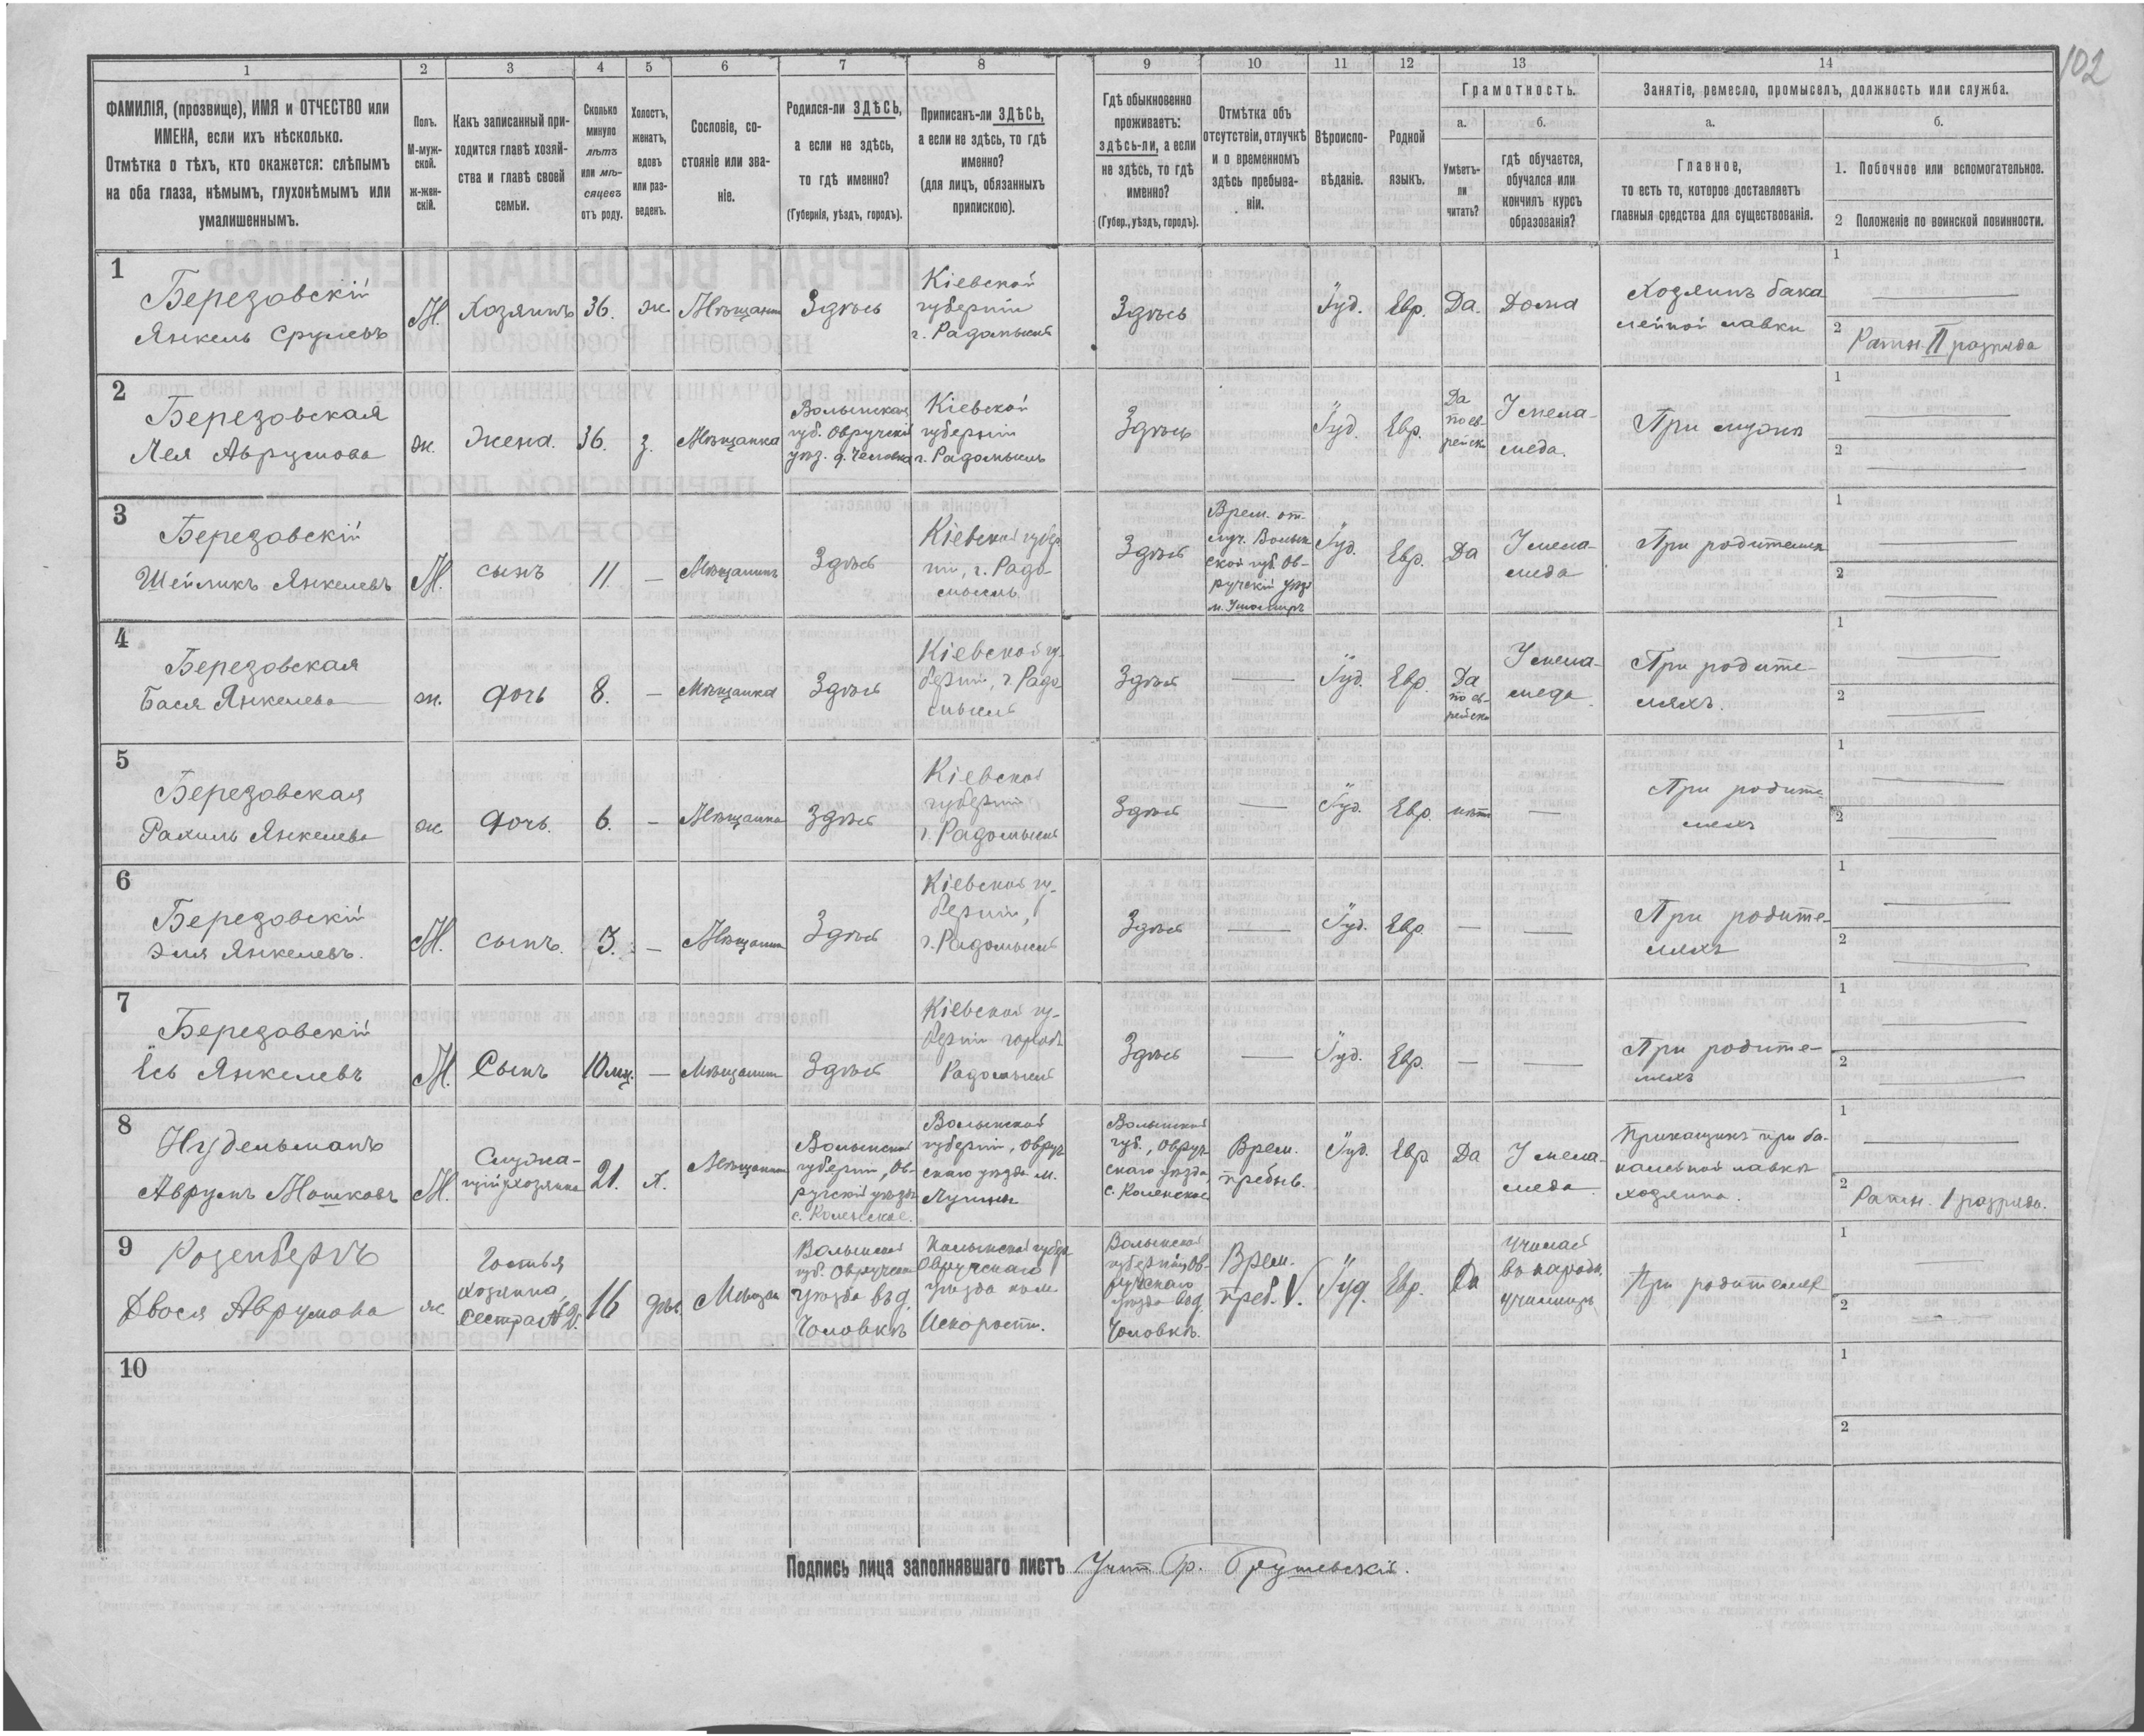 102
1 2 3 4 5 6 7 8 9 10 11 12 13 14
ФАМИЛІЯ, (прозвище), ИМЯ и ОТЧЕСТВО или
ИМЕНА, если ихъ нѣсколько.
Отмѣтка о тѣхъ, кто окажется: слѣпымъ
на оба глаза, нѣмымъ, глухонѣмымъ или
умалишеннымъ.
Полъ.
М-муж-
ской.
Ж-жен-
скій.
Какъ записанный при-
ходится главѣ хозяй-
ства и главѣ своей
семьи.
Сколько
минуло
лѣтъ
или мѣ-
сяцевъ
отъ роду.
Холостъ,
женатъ,
вдовъ
или раз-
веденъ.
Сословіе, со-
стояніе или зва-
ніе.
Родился-ли ЗДѢСЬ,
а если не здѣсь,
то гдѣ именно?
(Губернія, уѣздъ, городъ).
Приписанъ-ли ЗДѢСЬ,
а если не здѣсь, то гдѣ
именно?
(для лицъ, обязанныхъ
припискою).
Гдѣ обыкновенно
проживаетъ:
здѣсь-ли, а если
не здѣсь, то гдѣ
именно?
(Губер., уѣздъ, городъ).
Отмѣтка объ
отсутствіи, отлучкѣ
и о временномъ
здѣсь пребыва-
ніи.
Вѣроиспо-
вѣданіе.
Родной
языкъ.
Грамотность.
а.
Умѣетъ-
ли
читать?
б.
гдѣ обучается,
обучался или
кончилъ курсъ
образованія?
Занятіе, ремесло, промыселъ, должность или служба.
а.
Главное,
то есть то, которое доставляетъ
главныя средства для существованія.
б.
1. Побочное или вспомогательное.
2 Положеніе по воинской повинности.
1
Березовскій
Янкель Срулевъ
М.
Хозяинъ
36.
ж.
Мѣщанин
Здѣсь
Кіевской
губерніи
г. Радомысль
Здѣсь
Іуд.
Евр.
Да.
Дома
Хозяинъ бака
лейной лавки
1
2
Ратн. II разряда
2
Березовская
Лея Аврумова
ж.
Жена.
36.
з.
Мѣщанка
Волынская
губ. Овручскій
уѣз.
Кіевской
губерніи
г. Радомысль
Здѣсь
Іуд.
Евр.
Да
по ев-
рейски
У мела-
меда.
При мужѣ
1
2
3
Березовскій
Шейликъ Янкелевъ
М.
сынъ
11.
—
Мѣщанинъ
Здѣсь
Кіевской губер
ніи, г. Радо-
мысль
Здѣсь
Врем. от-
луч. Волын
ской губ. Ов-
ручскій уѣз
м. Ушомиръ
Іуд.
Евр.
Да
У мела-
меда
При родителяхъ
1
2
4
Березовская
Бася Янкелева
ж.
дочь
8.
—
Мѣщанка
Здѣсь
Кіевской гу-
берніи, г. Радо
мысль
Здѣсь
—
Іуд.
Евр.
Да
по ев-
рейски
У мела-
меда.
При родите-
ляхъ.
1
2
5
Березовская
Рахиль Янкелева
ж
дочь.
6.
—
Мѣщанка
Здѣсь
Кіевской
губерніи
г. Радомысль
Здѣсь
—
Іуд.
Евр.
нѣтъ
—
При родите
ляхъ
1
2
6
Березовскій
Эля Янкелевъ.
М.
сынъ.
3.
—
Мѣщанин
Здѣсь
Кіевской гу-
берніи,
г. Радомысль
Здѣсь
—
Іуд.
Евр.
—
—
При родите-
ляхъ
1
2
7
Березовскій
Ёсь Янкелевъ
М.
Сынъ
10 мц.
—
Мѣщанин
Здѣсь
Кіевской гу-
берніи городъ
Радомысль
Здѣсь
—
Іуд.
Евр.
—
—
При родите-
ляхъ
1
2
8
Нудельманъ
Аврумъ Мошковъ
М.
Служа-
щій у хозяина
21.
х.
Мѣщанин
Волынской
губерніи, Ов-
ручскій уѣздъ
с. Коленское.
Волынской
губерніи, Овруч
скаго уѣзда м.
Лугины
Волынской
губ., Овруч
скаго уѣзда,
с. Коленское
Врем.
пребыв.
Іуд.
Евр
Да
У мела-
меда.
Прикащикъ при ба-
калейной лавкѣ
хозяина.
1
2
Ратн. I разряда.
9
Розенбергъ
Двося Аврумова
ж
Гостья
хозяина,
Сестра
16
дѣв.
Мѣщан
Волынской
губ. Овручскаго
уѣзда въ д.
Чоловкѣ
Волынской губер
Овручскаго
уѣзда
Искорость.
Волынской
губерніи Ов-
ручскаго
уѣзда въ д.
Чоловкѣ.
Врем.
преб. V.
Іуд.
Евр.
Да
Училась
въ народн.
училищѣ
При родителяхъ
1
2
10
1
2
Подпись лица заполнявшаго листъ Учит. Гр. Грушевскій.